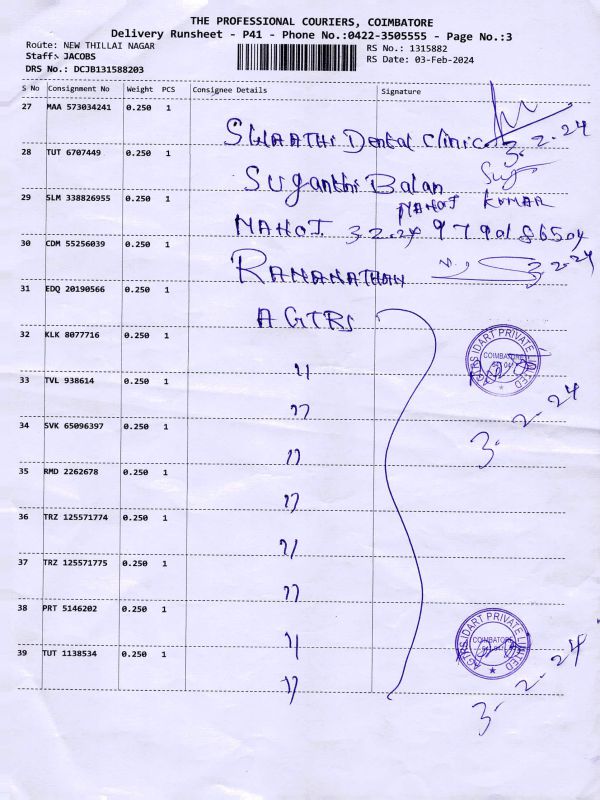 THE PROFESSIONAL COURIERS, COIMBATORE
Delivery Runsheet - P41 - Phone No.:0422-3505555 - Page No.:3
Route: NEW THILLAI NAGAR
RS No.: 1315882
Staff: JACOBS
RS Date: 03-Feb-2024
DRS No.: DCJB131588203
S No Consignment No Weight PCS Consignee Details Signature
27 MAA 573034241 0.250 1
SWAATHI Dental Clinic 3.2.24
28 TUT 6707449 0.250 1
Suganthi Balan
29 SLM 338826955 0.250 1
MAHOJ KUMAR
MAHOJ 3.2.24
30 CDM 55256039 0.250 1
RAMANATHAN 3.2.24
31 EDQ 20190566 0.250 1
AGTRS
32 KLK 8077716 0.250 1
AGTRS IDART PRIVATE LIMITED
COIMBATORE
"
33 TVL 938614 0.250 1
"
3.2.24
34 SVK 65096397 0.250 1
"
35 RMD 2262678 0.250 1
"
36 TRZ 125571774 0.250 1
"
37 TRZ 125571775 0.250 1
"
38 PRT 5146202 0.250 1
AGTRS IDART PRIVATE LIMITED
COIMBATORE
"
39 TUT 1138534 0.250 1
"
3.2.24